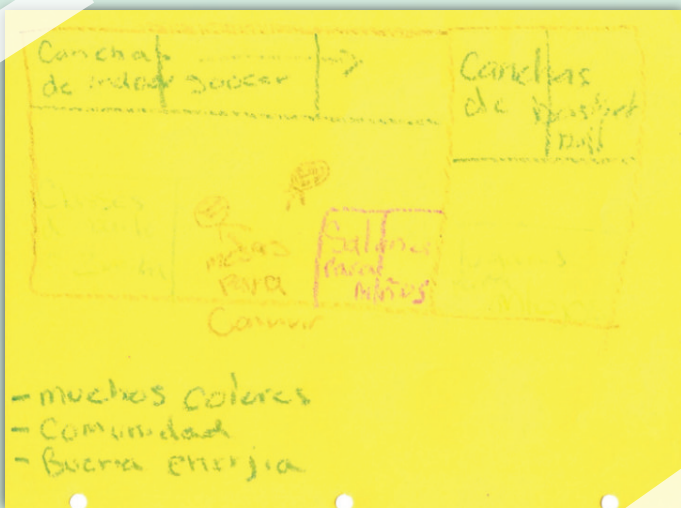 Canchas
de indoor soccer
Canchas
de basket
ball
Clases
de
Zumba
mesas
para
Convivir
Salones
para
niños
para
- muchos colores
- Comunidad
- Buena enerjia